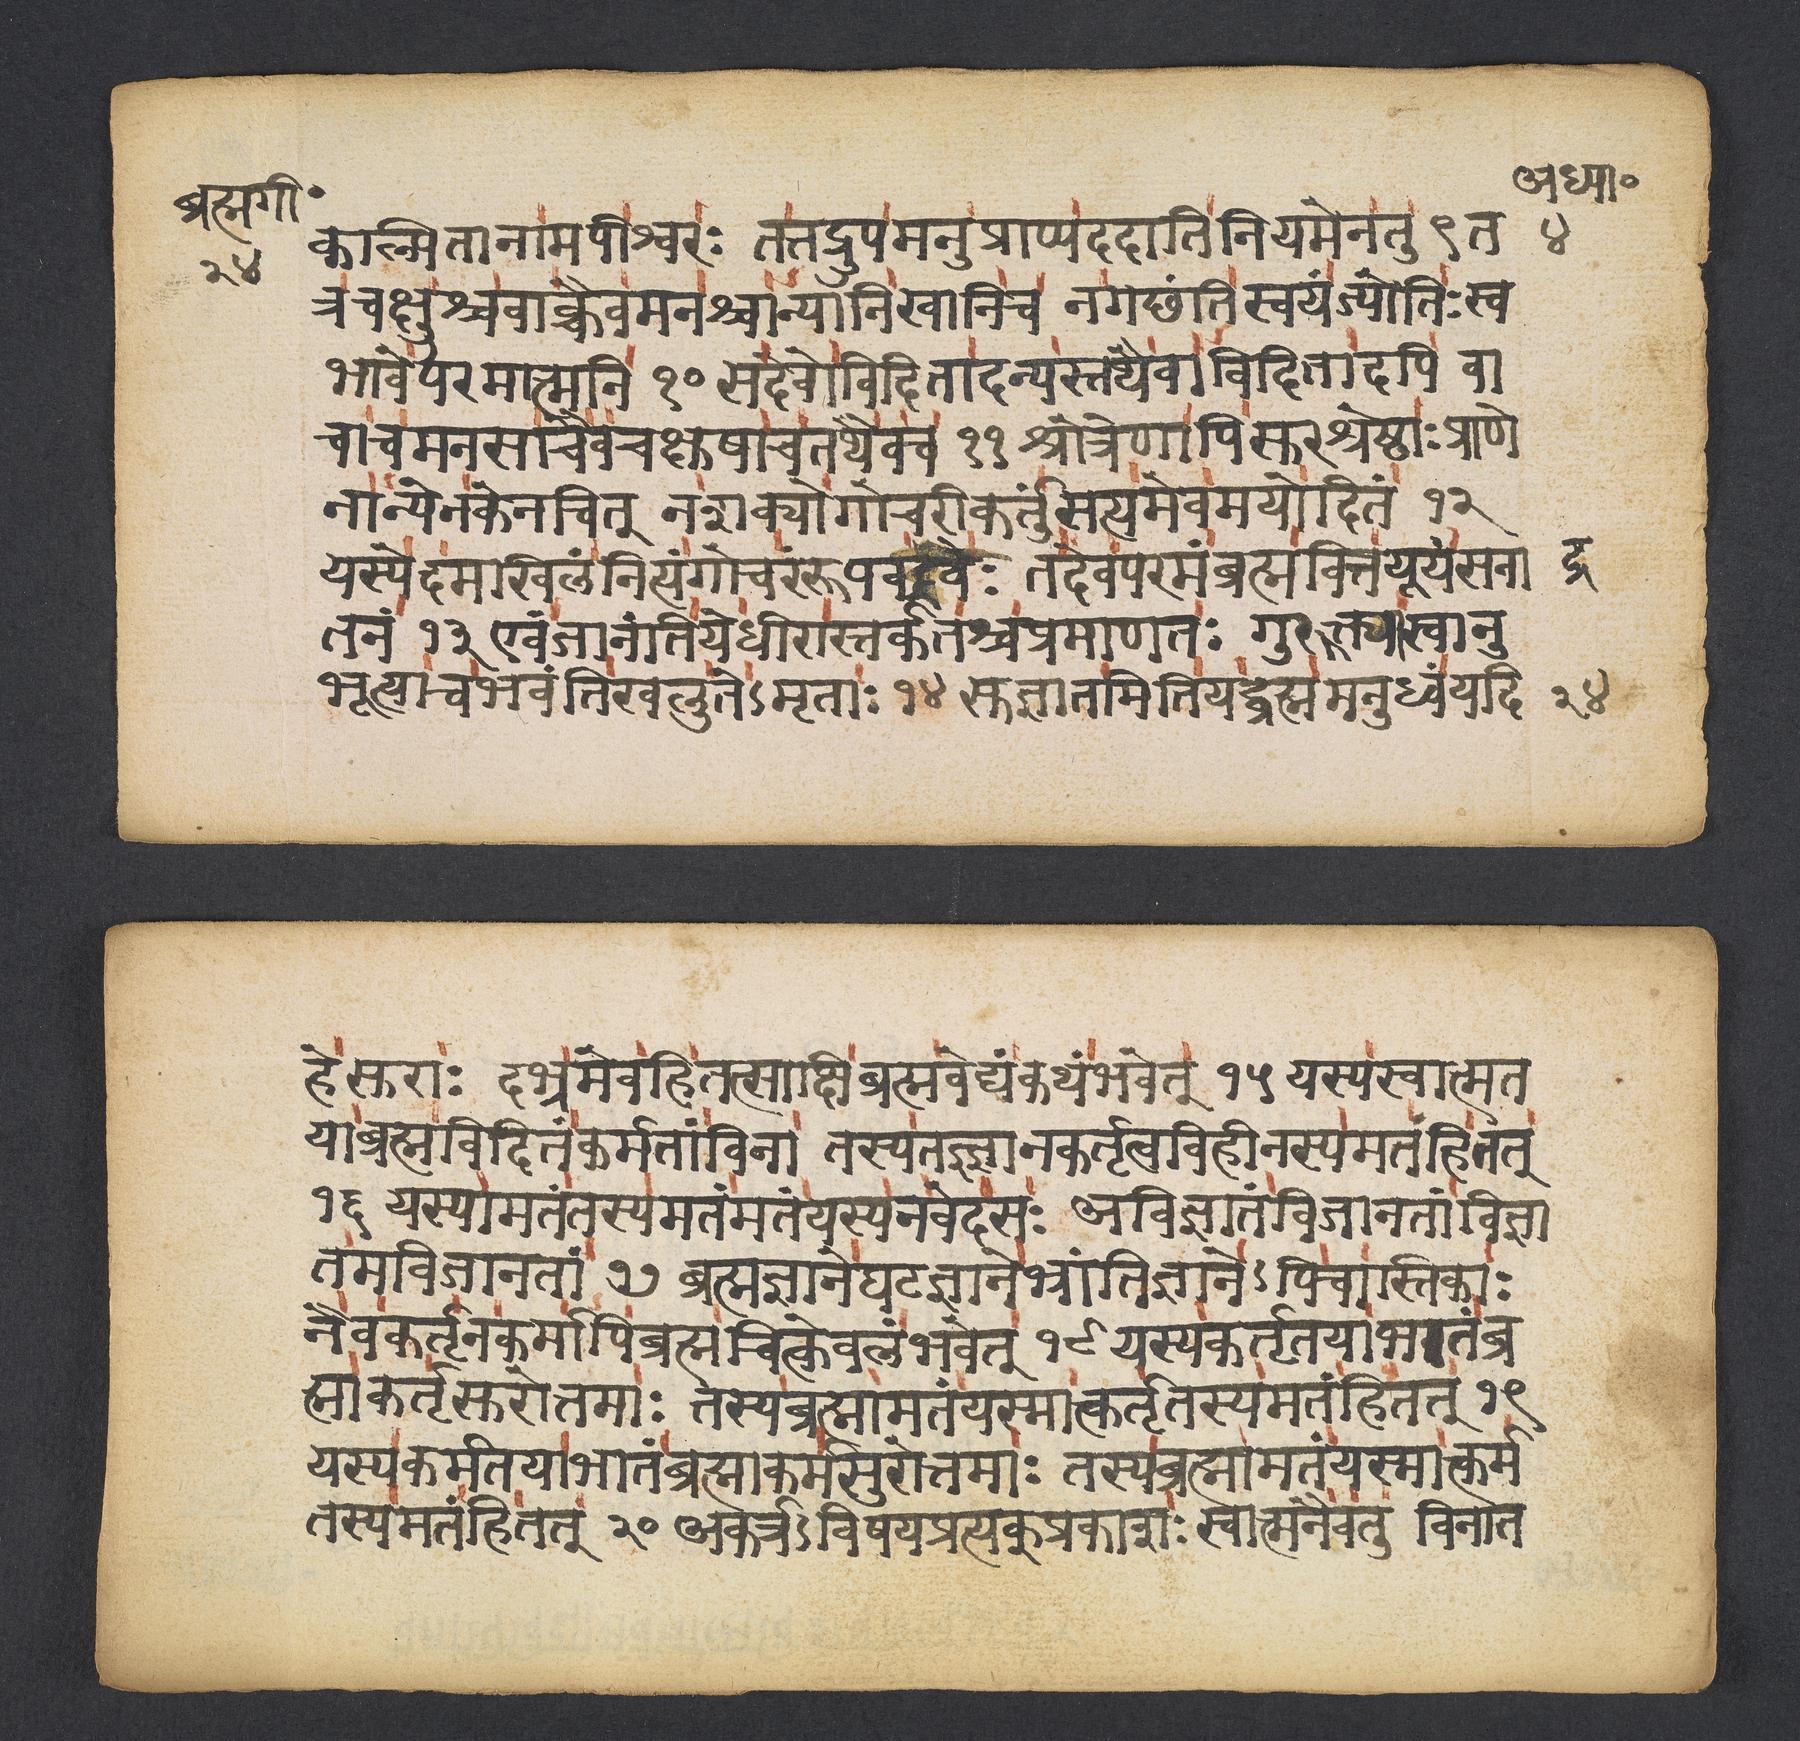 ब्रह्मगी॰
अध्या॰
२४
४
कात्मितानामपीश्वरः तत्तद्रुपमनुप्राप्यददातिनियमेनतु ९ त
त्रचक्षुश्चवाक्चैवमनश्चान्यानिखानिच नगछंतिस्वयंज्योतिःस्व
भावेपरमात्मनि १० सदेवोविदितादन्यस्तथैवाविदितादपि वा
चाचमनसाचैवचक्षुषाचतथैवच ११ श्रोत्रेणापिसुरश्रेष्ठाःप्राणे
नान्येनकेनचित् नशक्योगोचरीकर्तुंसत्यमेवमयोदितं १२
यस्येदमाखिलंनित्यंगोचरंरूपवद्रवेः तदेवपरमंब्रह्मवित्तयूयंसना
द्र
तनं १३ एवंजानंतियेधीरास्तर्कतश्चप्रमाणतः गुरूक्त्यास्वानु
भूत्याचभवंतिखलुतेऽमृताः १४ सुज्ञातमितियद्ब्रह्ममनुध्वंयदि
२४
हेसुराः दभ्रमेवहितत्साक्षिब्रह्मवेद्यंकथंभवेत् १५ यस्यस्वात्मत
याब्रह्मविदितंकर्मतांविना तस्यतज्ज्ञानकर्तृत्वविहीनस्यमतंहितत्
१६ यस्यामतंतस्यमतंमतंयस्यनवेदसः अविज्ञातंविजानतांविज्ञा
तमविजानतां १७ ब्रह्मज्ञानेघटज्ञानेभ्रांतिज्ञानेऽपिचास्तिकाः
नैवकर्तृनकर्मापिब्रह्मचित्केवलंभवेत् १८ यस्यकर्तृतयाभातंब्र
ह्माकर्तृसुरोत्तमाः तस्यब्रह्मामतंयस्मात्कर्तृतस्यमतंहितत् १९
यस्यकर्मतयाभातंब्रह्माकर्मसुरोत्तमाः तस्यब्रह्मामतंयस्मात्कर्म
तस्यमतंहितत् २० अकर्त्रऽविषयप्रत्यक्प्रकाशः स्वात्मनैवतु विनात